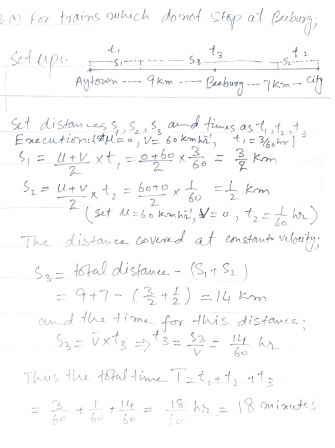 2 a) For trains which do not stop at Beeburg;
Set up:.
t₁ t₃ t₂
S₁ S₃ S₂
Aytown --- 9 km --- Beeburg -- 7 km -- City
Set distances S₁, S₂, S₃ and times as t₁, t₂, t₃
Execution: u = 0, V = 60 kmhr⁻¹, t₁ = 3/60 hr)
S₁ = (u+v)/2 × t₁ = (0+60)/2 × 3/60 = 3/2 km
S₂ = (u+v)/2 × t₂ = (60+0)/2 × 1/60 = 1/2 km
(set u = 60 kmhr⁻¹, V = 0, t₂ = 1/60 hr)
The distance covered at constant velocity;
S₃ = total distance - (S₁ + S₂)
= 9 + 7 - (3/2 + 1/2) = 14 km
and the time for this distance;
S₃ = v̄ × t₃ ⇒ t₃ = S₃/v = 14/60 hr
Thus the total time T = t₁ + t₂ + t₃
= 3/60 + 1/60 + 14/60 = 18/60 hr = 18 minutes